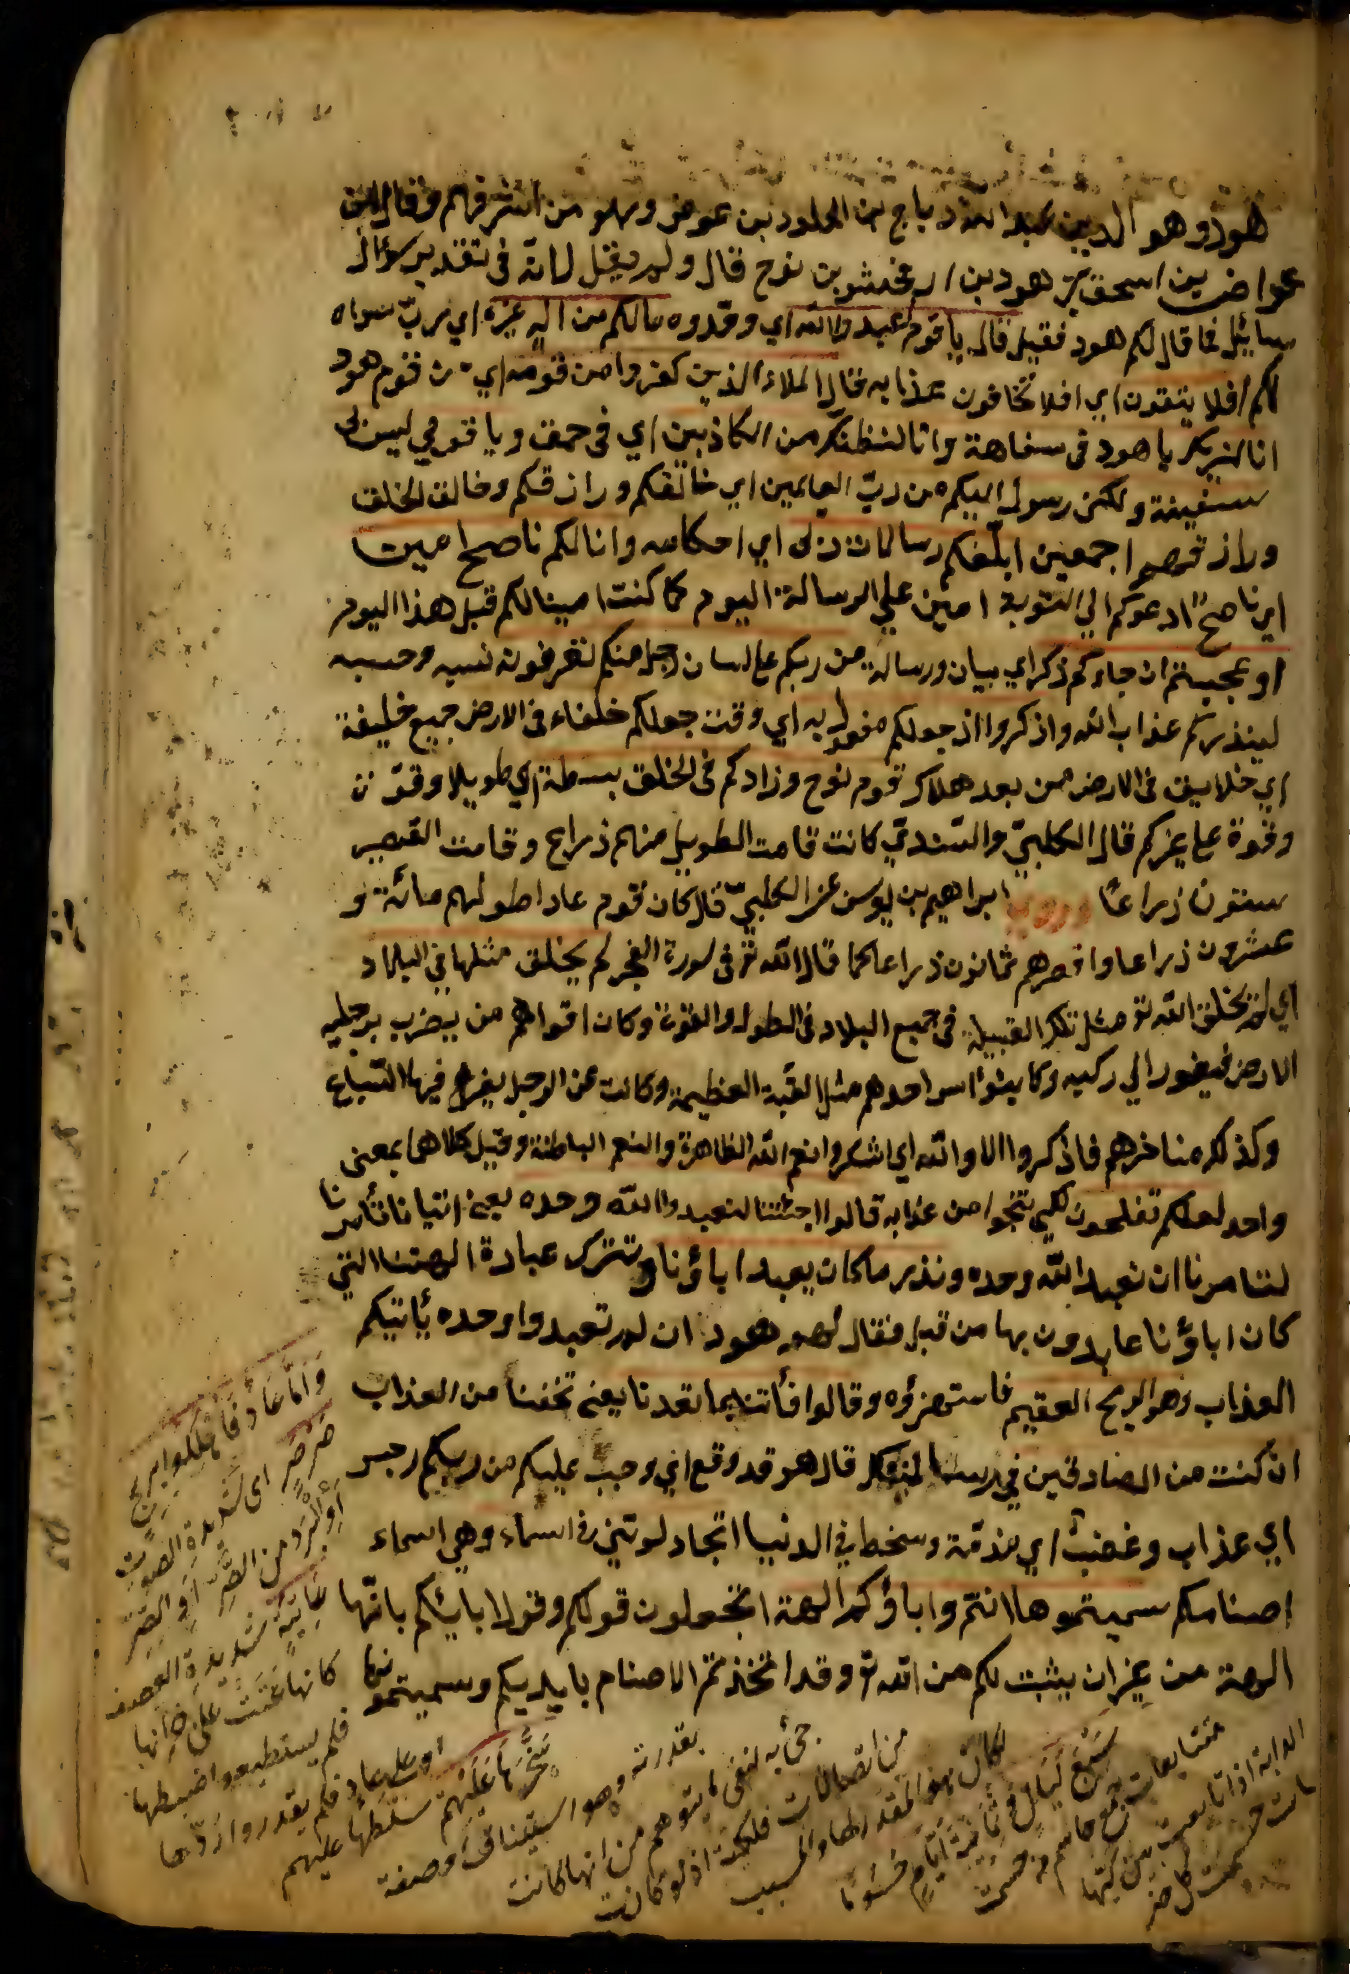 هود وهو الدين عبد الله دباج بن الخلود بن عوض وهو من اشرفهم وقال ابن
اسحق هو هود بن ارفخشد بن نوح قال ولم يقل لانه في تقدير سؤال
سايل فما قال لكم هود فقيل قال يا قوم اعبدوا الله اي وحدوه مالكم من اله غيره اي رب سواه
لكم افلا يتقون اي افلا تخافون عذابه قال الملاء الذين كفروا من قومه اي من قوم هود
انا لنريك يا هود في سفاهة وانا لنظنك من الكاذبين اي في حمق ويا قومي ليس لي
سفيهة ولكن رسول اليكم من رب العالمين اي خالقكم ورازقكم وخالق الخلق
ورازقهم اجمعين ابلغكم رسالات ربي اي احكامه وانا لكم ناصح امين
اي ناصح ادعوكم الي التوبة امين علي الرسالة اليوم كما كنت امينا لكم قبل هذا اليوم
او عجبتم ان جاءكم ذكر اي بيان ورسالة من ربكم على لسان رجل منكم تعرفون نسبه وحسبه
لينذركم عذاب الله واذكروا اذ جعلكم مفعول به اي وقت جعلكم خلفاء في الارض جميع خليفة
اي خلايق في الارض من بعد هلاك قوم نوح وزادكم في الخلق بسطة اي طويلا وقوة
وقوة على غيركم قال الكلبي والسدي كانت قامت الطويل منهم ذراع وقامت القصير
ستون ذراعا وروي ابراهيم بن يوسف عن الكلبي قال كان قوم عاد اطولهم مائة و
عشرون ذراعا واقصرهم ثمانون ذراعا كما قال الله تع في سورة الفجر لم يخلق مثلها في البلاد
اي لم يخلق الله تع مثل تلك القبيلة في جميع البلاد في الطول والقوة وكان اقواهم من يضرب برجليه
الارض فيغور الي ركبيه وكان رأس احدهم مثل القبة العظيمة وكانت عين الرجل يفرخ فيها السباع
وكذلك مناخرهم فاذكروا الاء الله اي اشكروا نعم الله الظاهرة والنعم الباطنة وقيل كلاهما بمعنى
واحد لعلكم تفلحون لكي تنجوا من عذابه قالوا اجئتنا لنعبد الله وحده يعني اتيانا تأمرنا
لتامرنا ان نعبد الله وحده ونذر ما كان يعبد اباؤنا ونترك عبادة الهتنا التي
كان اباؤنا عابدون بها من قبل فقال لهم هود ان لم تعبدوا وحده يأتيكم
العذاب وهو الريح العقيم فاستهزؤه وقالوا فأتنا بما تعدنا يعني تخفنا من العذاب
ان كنت من الصادقين في رسالتك قال هو قد وقع اي وجب عليكم من ربكم رجس
اي عذاب وغضب اي مذمة وسخط في الدنيا اتجادلونني في اسماء وهي اسماء
اصنامكم سميتموها انتم واباؤكم الهة اتجعلون قولكم وقول ابائكم بانها
الهة من غير ان يثبت لكم من الله تع وقد اتخذتم الاصنام بايديكم وسميتموها
وَاَمَّا عَاد فَاُهْلِكُوا بِرِيح
صَرْصَرٍ اى شديدة الصوت
او البرد من الصَّر او الصِر
عَاتِيَةٍ شديدة العصف
كانها عَتَتْ على خزانها
فلم يستطيعوا ضبطها
او على عاد فلم يقدروا ردّها
سَخَّرَهَا عَلَيْهِمْ سلّطها عليهم
بقدرته وهو استيناف او صفة
جئ به لنفى ما يتوهم من انها كانت
من اتصالات فلكية اذ لو كانت
لكان هو المقدر لها والمسبب
سَبْعَ لَيَالٍ وَثَمَانِيَةَ اَيَّامٍ حُسُومًا
متتابعات جمع حاسم من حسمت
الدابة اذا تابعت بين كيّها